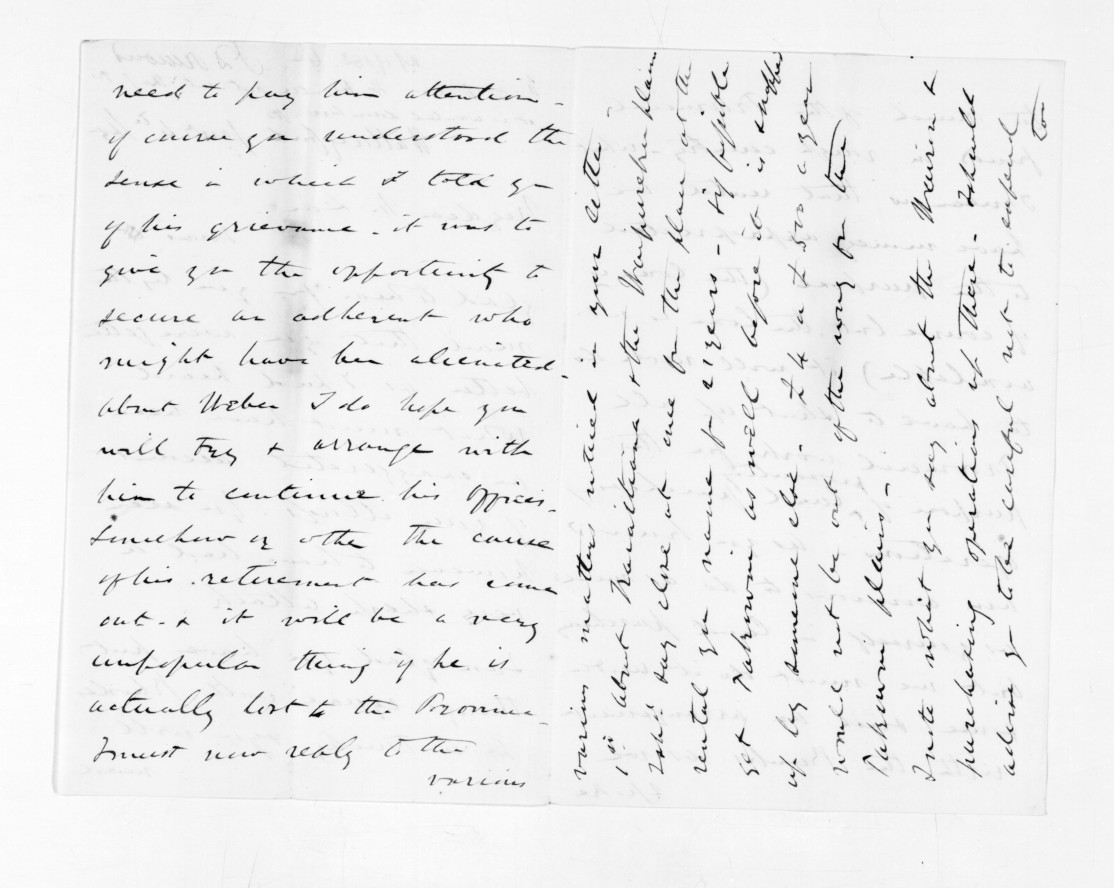 need to pay him attention -
of course you understood the
sense in which I told you
of his grievance - it was to
give you the opportunity to
secure an adherent who
might have been alienated -
about Weber I do hope you
will try & arrange with
him to continue his offices.
Somehow or other the cause
of his retirement has come
out - & it will be a very
unpopular thing if he is
actually lost to the Province -
I must now reply to the
various
various matters noticed in your letter -
1st about & the plain
I shd say close at once for the plain at the
rental you name for 21 years - & if possible
get as well before it is snapped
up by someone else - £400 & £500 a year
would not be out of the way for the
plains -
I note what you say about the Wairoa &
purchasing operations up there - I should
advise you to be careful not to expend
too